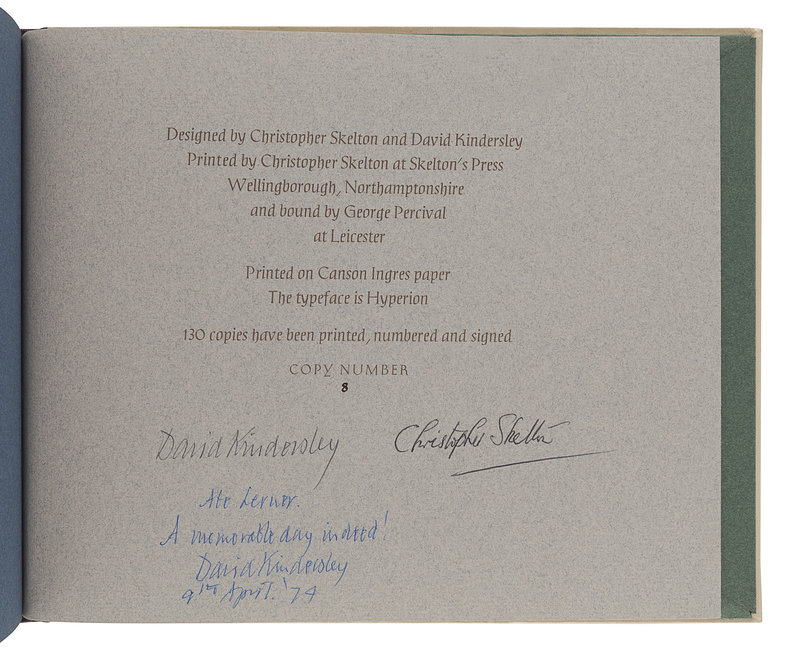 Designed by Christopher Skelton and David Kindersley
Printed by Christopher Skelton at Skelton's Press
Wellingborough, Northamptonshire
and bound by George Percival
at Leicester
Printed on Canson Ingres paper
The typeface is Hyperion
130 copies have been printed, numbered and signed
COPY NUMBER
8
David Kindersley
Christopher Skelton
Abe Lerner.
A memorable day indeed!
David Kindersley
9th April. '74